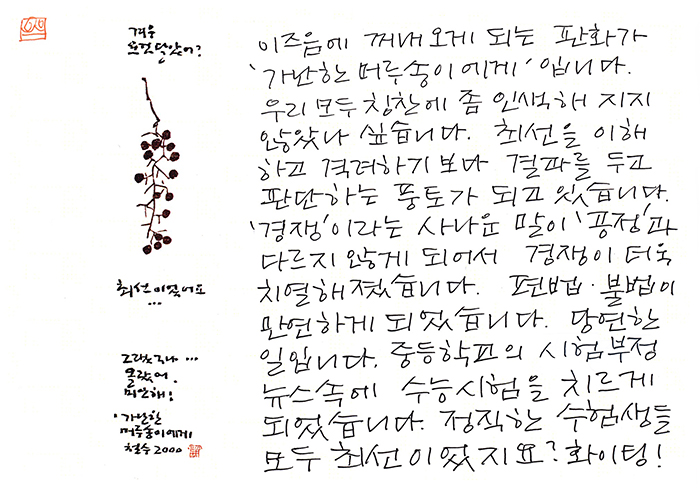 겨우
요것 달았어?
최선이었어요
...
그랬구나 ...
몰랐어.
미안해!
'가난한
머루송이에게
철수 2000
이즈음에 꺼내 오게 되는 판화가
'가난한 머루송이에게' 입니다.
우리 모두 칭찬에 좀 인색해 지지
않았나 싶습니다. 최선을 이해
하고 격려하기 보다 결과를 두고
판단하는 풍토가 되고 있습니다.
'경쟁'이라는 사나운 말이 '공정'과
다르지 않게 되어서 경쟁이 더욱
치열해졌습니다. 편법·불법이
만연하게 되었습니다. 당연한
일입니다. 중등학교의 시험부정
뉴스속에 수능시험을 치르게
되었습니다. 정직한 수험생들
모두 최선이었지요? 화이팅!